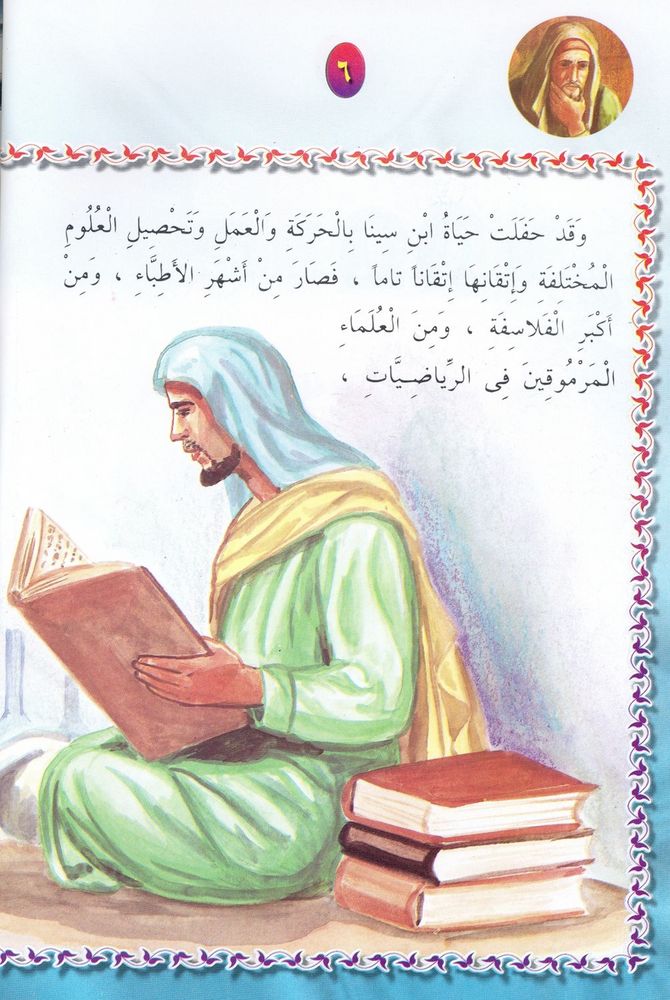 ٦
وَقَدْ حَفَلَتْ حَيَاةُ ابْنِ سِينَا بِالْحَرَكَةِ وَالْعَمَلِ وَتَحْصِيلِ الْعُلُومِ
الْمُخْتَلِفَةِ وَإِتْقَانِهَا إِتْقَاناً تاماً ، فَصَارَ مِنْ أَشْهَرِ الأَطِبَّاءِ ، وَمِنْ
أَكْبَرِ الْفَلاسِفَةِ ، وَمِنَ الْعُلَمَاءِ
الْمَرْمُوقِينَ فِى الرِّيَاضِيَّاتِ ،